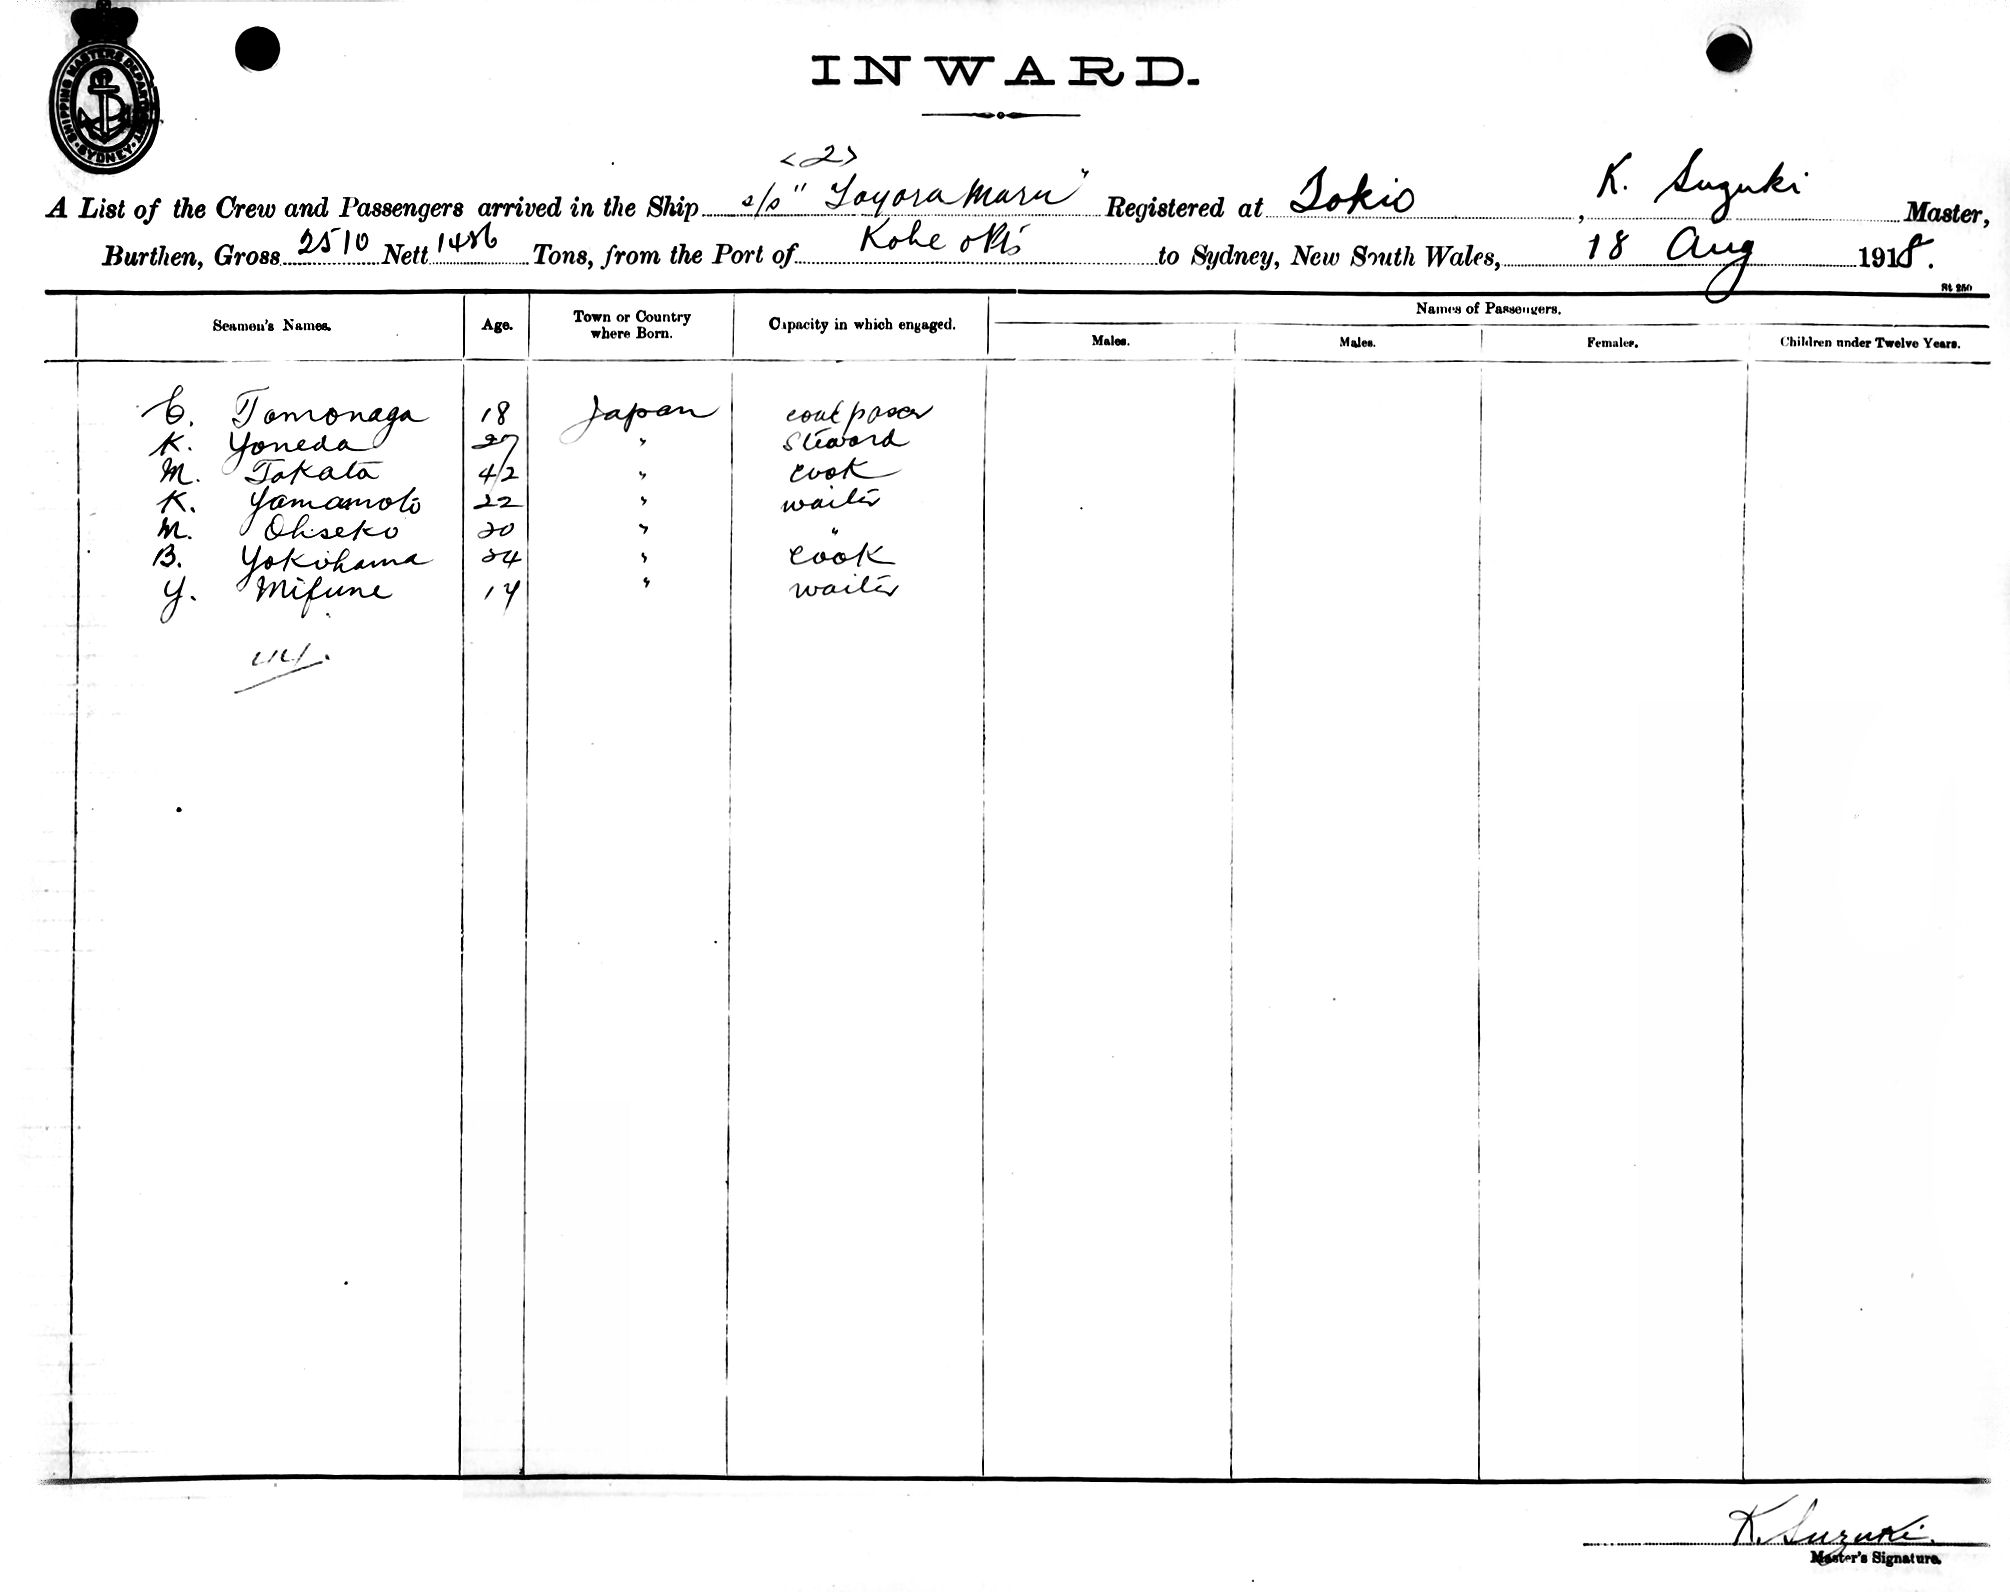 SHIPPING MASTERS DEPARTMENT
SYDNEY
INWARD.
<2>
A List of the Crew and Passengers arrived in the Ship s/s "Toyora Maru" Registered at Tokio, K. Suzuki Master,
Burthen, Gross 2510 Nett 1486 Tons, from the Port of Kobe to Sydney, New South Wales, 18 Aug 1918.
St 250
Seamen's Names. Age. Town or Country where Born. Capacity in which engaged. Names of Passengers.
Males. Males. Females. Children under Twelve Years.
C. Tomonaga 18 Japan coal passer
K. Yoneda 27 " Steward
M. Takata 42 " cook
K. Yamamoto 22 " waiter
M. Ohseko 20 " "
B. Yokohama 24 " cook
Y. Mifune 17 " waiter
44.
K. Suzuki.
Master's Signature.